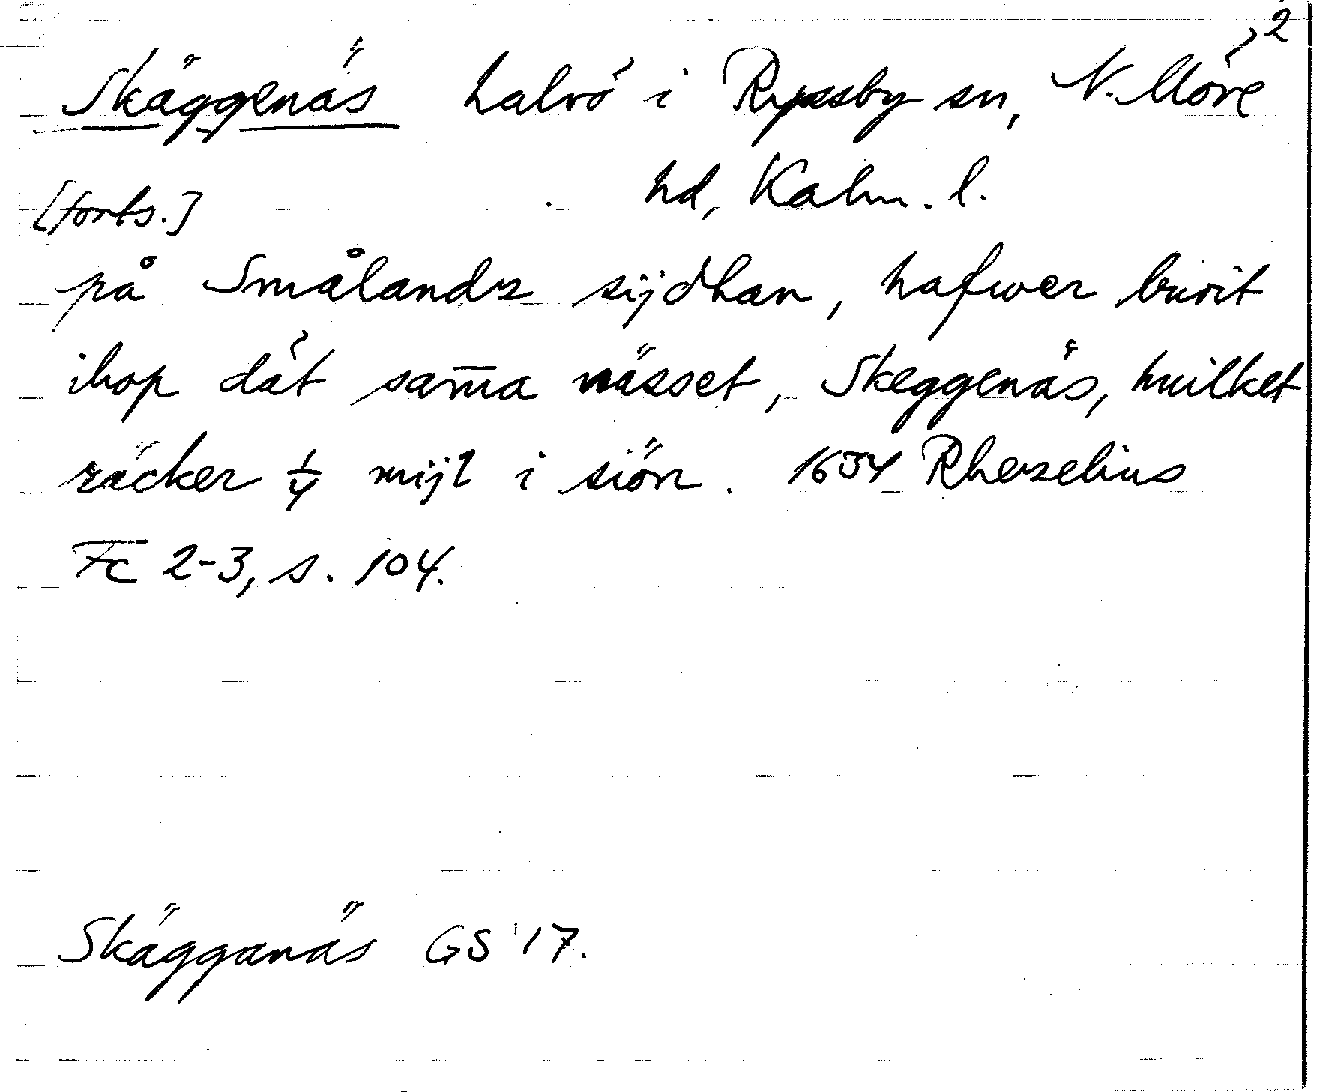 2
Skäggenäs halvö i Ryssby sn, N. Möre
hd, Kalm. l.
[forts.]
på Smålandz sijdhan, hafwer burit
ihop dät sam̄a nässet, Skeggenäs, huilket
räcker 1/4 mijl i siön. 1634 Rhezelius
Fc 2-3, s. 104.
Skägganäs GS '17.